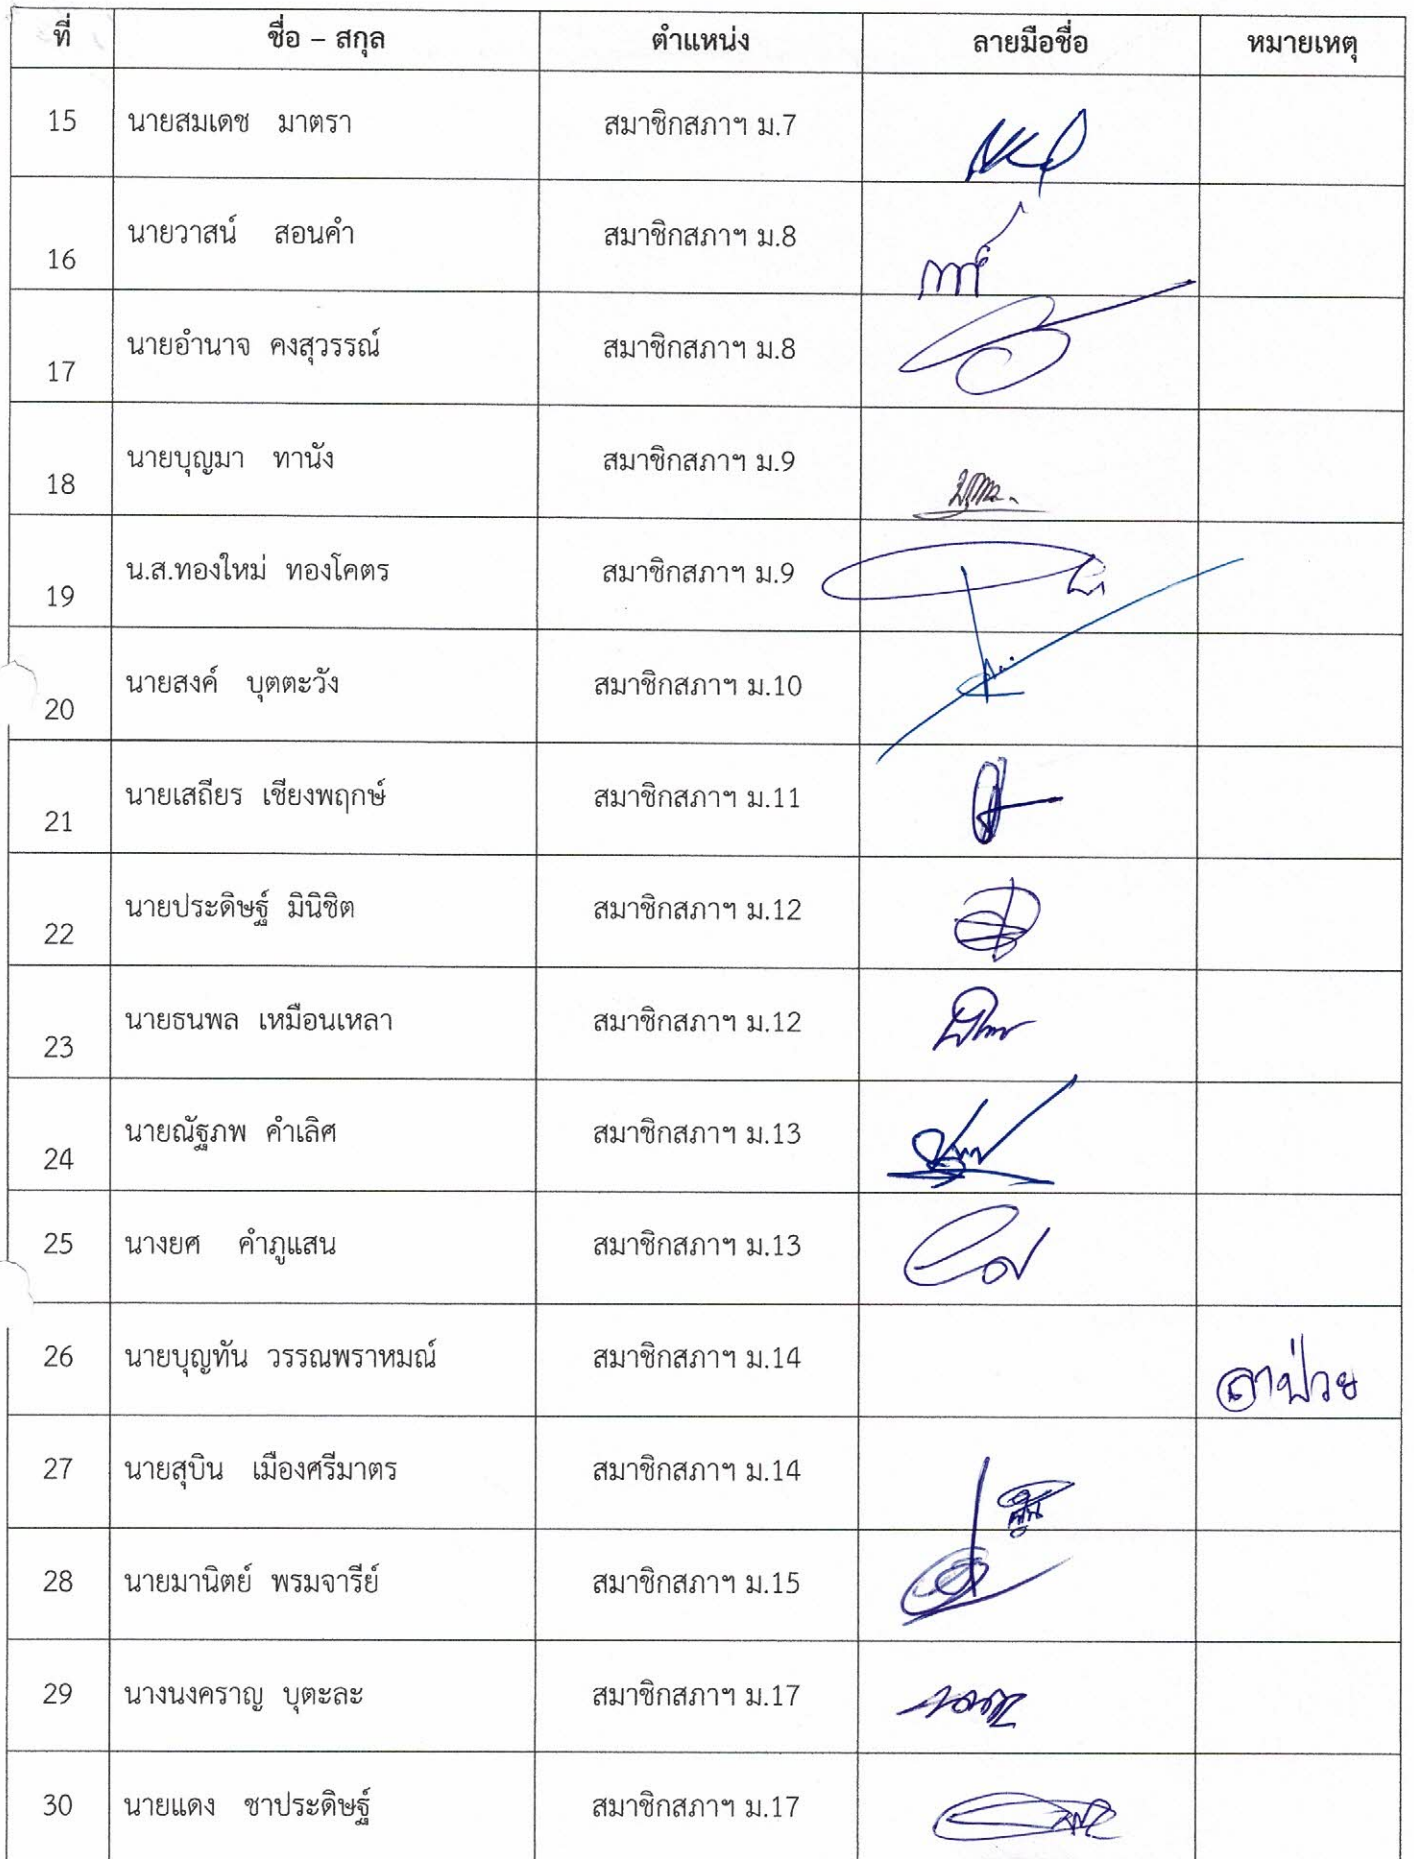 ที่ ชื่อ – สกุล ตำแหน่ง ลายมือชื่อ หมายเหตุ
15 นายสมเดช มาตรา สมาชิกสภาฯ ม.7
16 นายวาสน์ สอนคำ สมาชิกสภาฯ ม.8
17 นายอำนาจ คงสุวรรณ์ สมาชิกสภาฯ ม.8
18 นายบุญมา ทานัง สมาชิกสภาฯ ม.9
19 น.ส.ทองใหม่ ทองโคตร สมาชิกสภาฯ ม.9
20 นายสงค์ บุตตะวัง สมาชิกสภาฯ ม.10
21 นายเสถียร เชียงพฤกษ์ สมาชิกสภาฯ ม.11
22 นายประดิษฐ์ มินิชิต สมาชิกสภาฯ ม.12
23 นายธนพล เหมือนเหลา สมาชิกสภาฯ ม.12
24 นายณัฐภพ คำเลิศ สมาชิกสภาฯ ม.13
25 นางยศ คำภูแสน สมาชิกสภาฯ ม.13
26 นายบุญทัน วรรณพราหมณ์ สมาชิกสภาฯ ม.14 ลาป่วย
27 นายสุบิน เมืองศรีมาตร สมาชิกสภาฯ ม.14
28 นายมานิตย์ พรมจารีย์ สมาชิกสภาฯ ม.15
29 นางนงคราญ บุตะละ สมาชิกสภาฯ ม.17
30 นายแดง ชาประดิษฐ์ สมาชิกสภาฯ ม.17